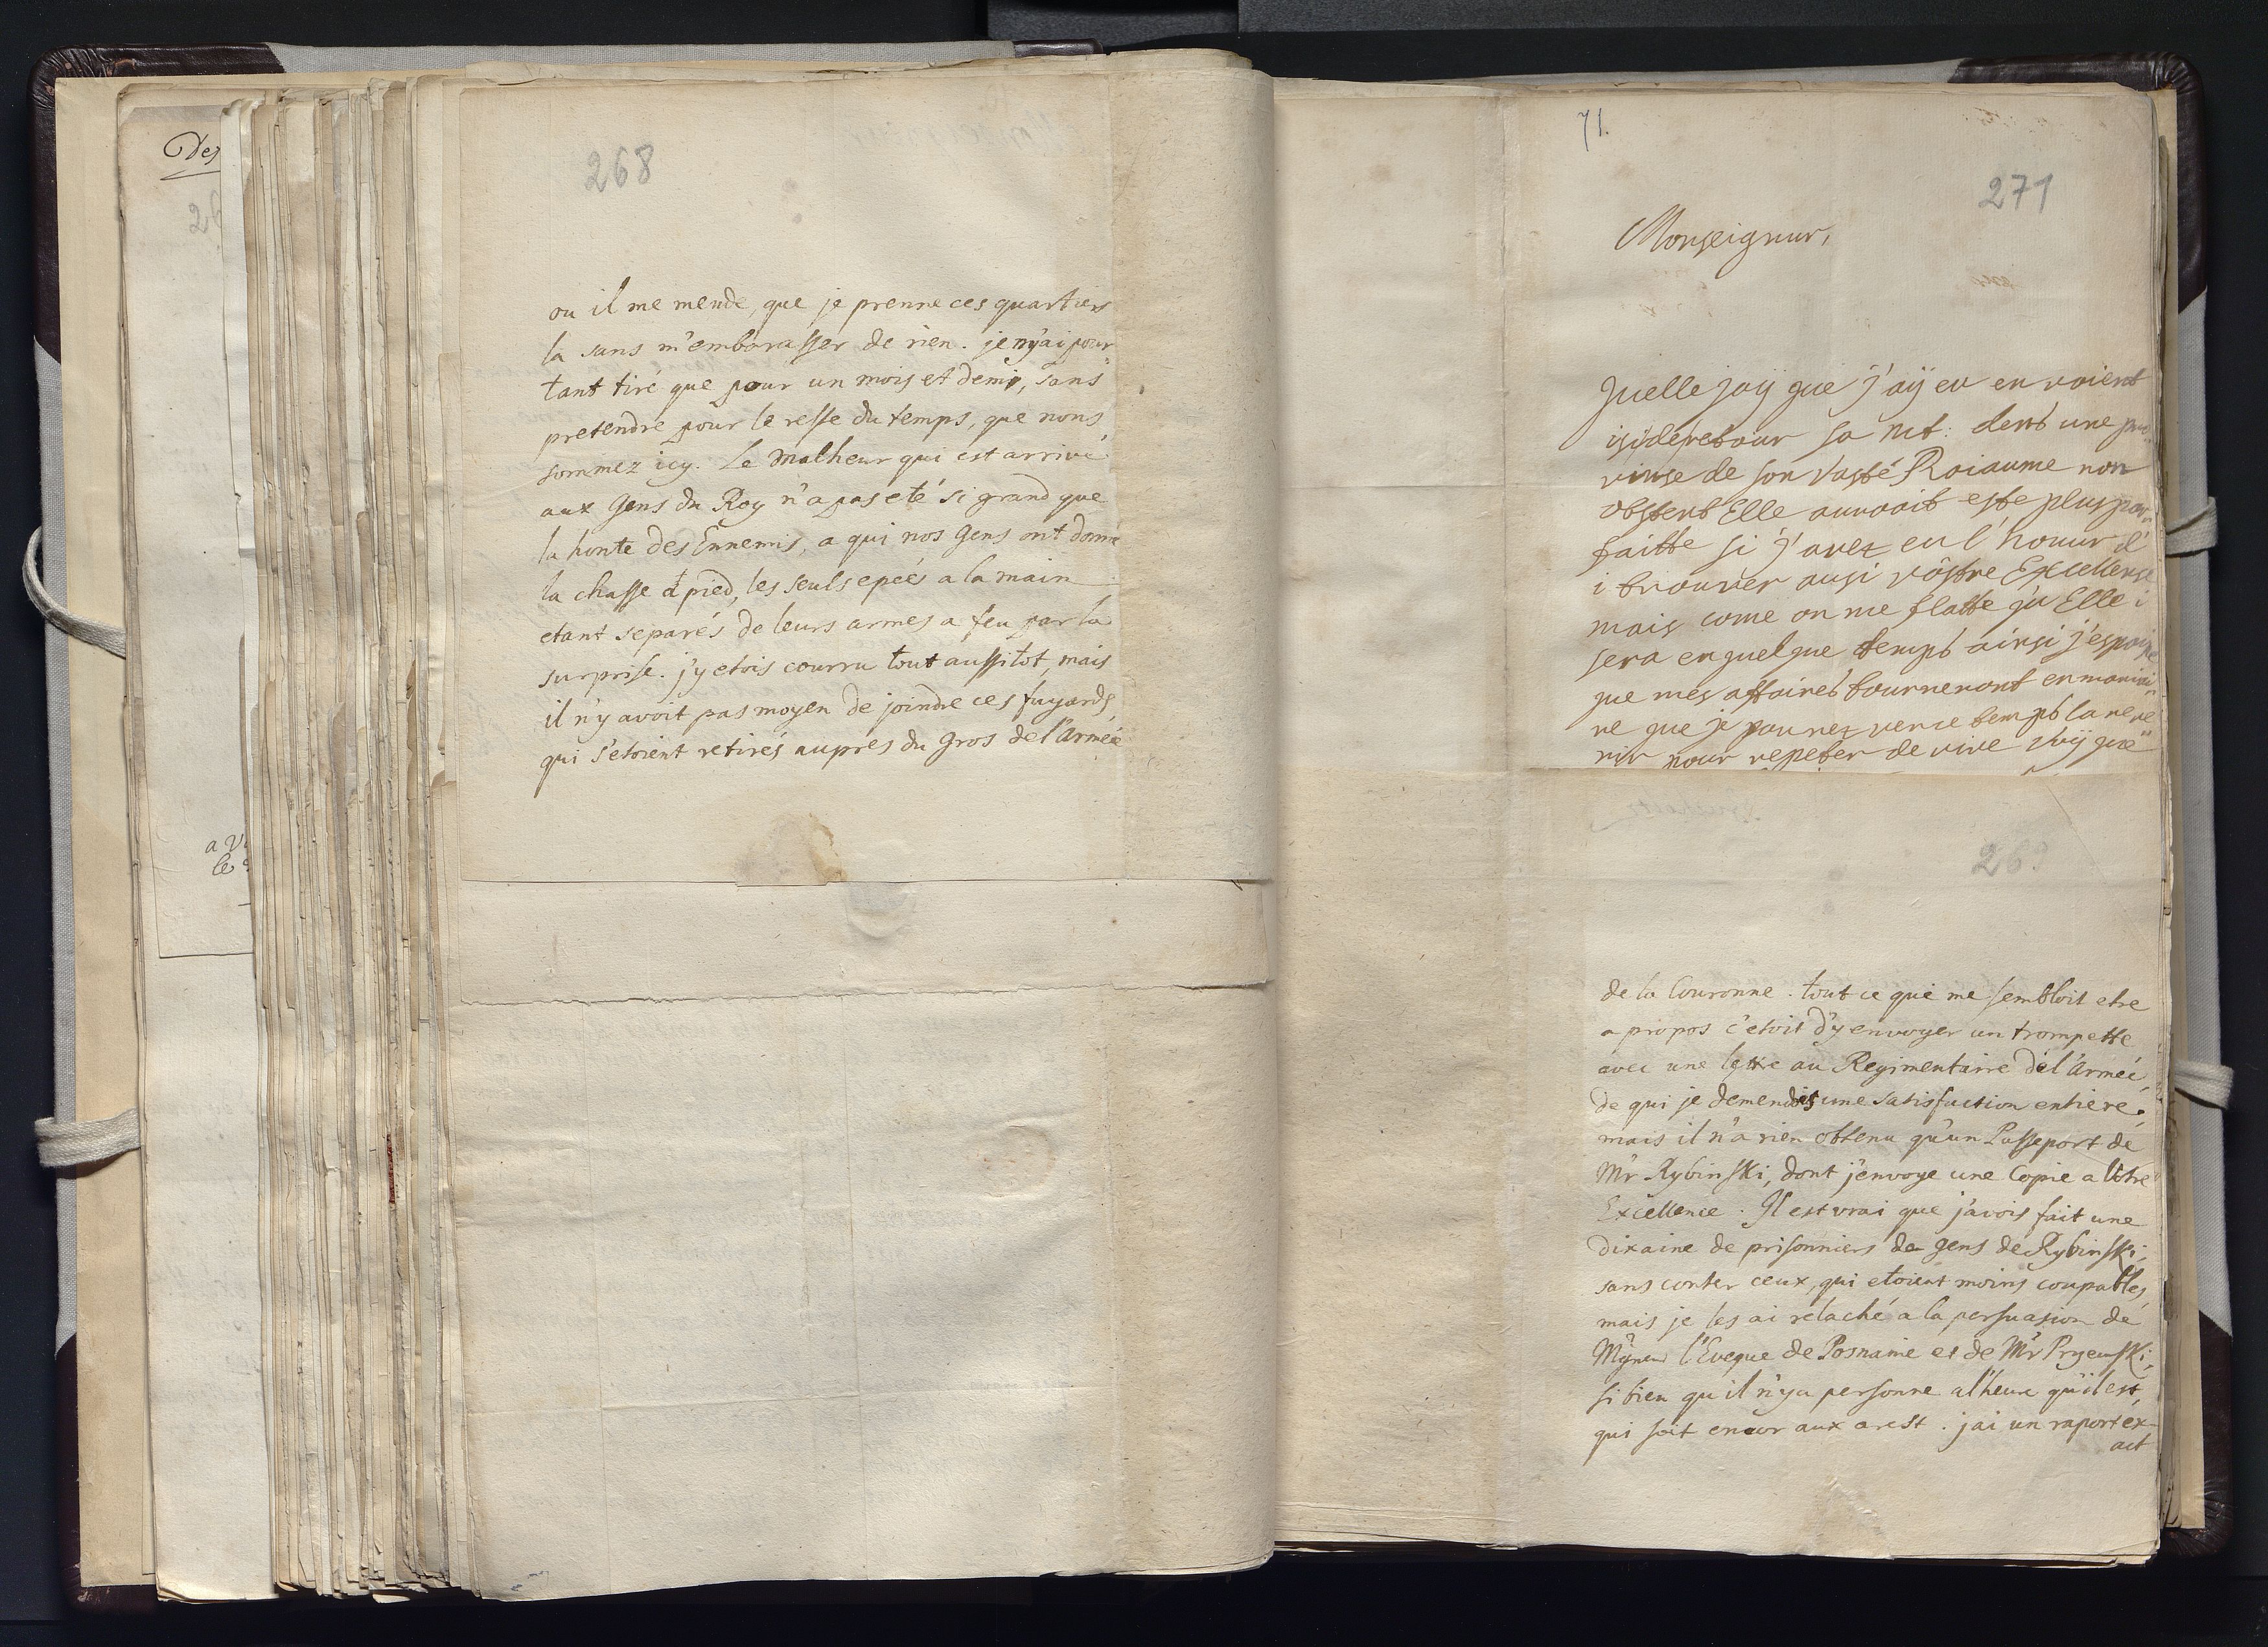 Des
26
a V
le
268
ou il me mende, que je prenne ces quartiers
la sans m'embarasser de rien. je n'y ai pour
tant tiré que pour un mois et demi, sans
pretendre pour le reste du temps, que nous
sommez icy. Le Malheur qui est arrivé
aux Gens du Roy n'a pas eté si grand que
la honte des Ennemis, a qui nos Gens ont donné
la chasse a pied, les seuls epeés a la main
etant separés de leurs armes a feu par la
surprise. j'y etois courru tout aussitot, mais
il n'y avoit pas moyen de joindre ces fuyards
qui s'etoient retirés auprés du Gros de l'Armée
71.
271
Monseignur,
Quelle joÿ que j'aÿ eu en voient
isi de retour sa Mt: dent une pro
vinse de son vasté Roiaume non
obstent Elle auroait este plus par
faitte si j'avez eu l'honur d'
i trouver ausi vôstre Excellense
mais come on me flatte qu Elle i
sera en quelque temps ainsi j'espoire
que mes affaires tourneront en mani
re que je pourez vers ce temps la reve
nir pour repeter de vive voÿ que
269
de la Couronne. tout ce que me sembloit etre
a propos c'etoit d'y envoyer un trompette
avec une lettre au Regimentaire de l'Armeé,
de qui je demendois une satisfaction entiere.
mais il n'a rien obtenu qu'un Passeport de
Mr Rybinski, dont j'envoye une Copie a Votre
Excellence. Il est vrai que j'avois fait une
dixaine de prisonniers de gens de Rybinski,
sans conter ceux, qui etoient moins coupables,
mais je les ai relaché a la persuasion de
Mgneur l'Eveque de Posnanie et de Mr Pryemski,
si bien qu'il n'y a personne a l'heure qu'il est,
qui soit encor aux arest. j'ai un raport ex-
act